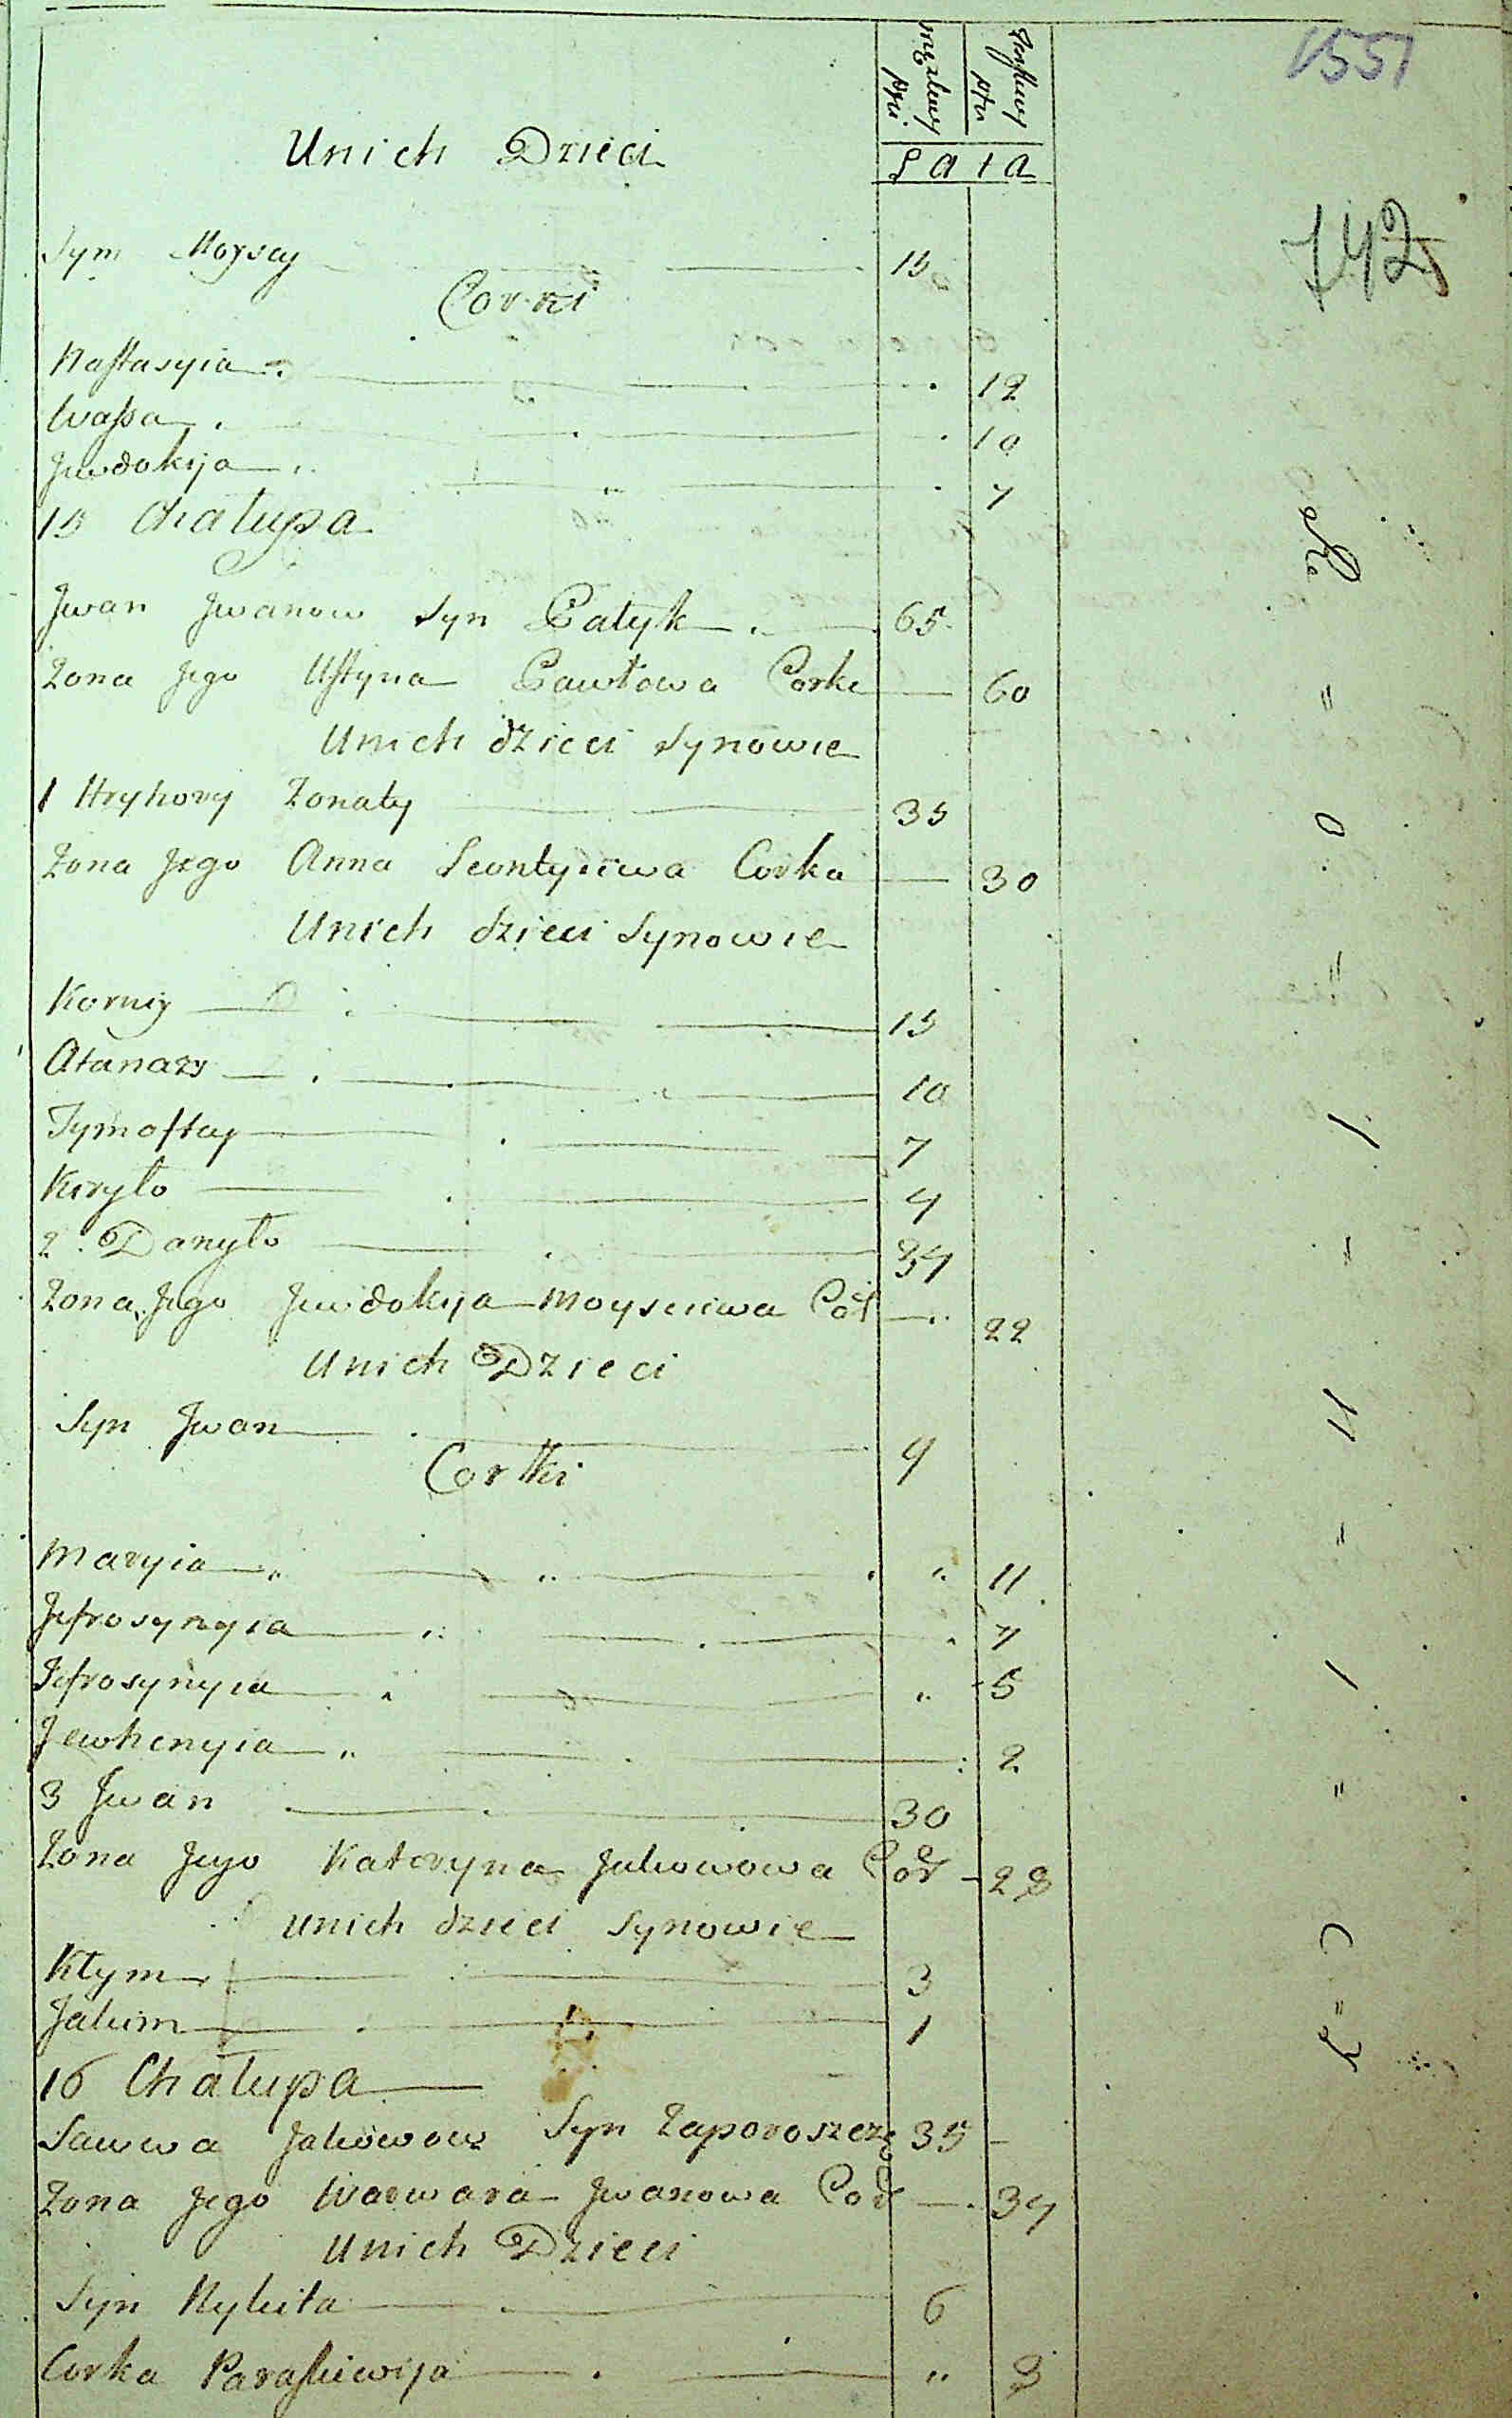 1551
742
męzkiey płci | żeńskiey płci
Lata
Unich Dzieci
Syn Moysey 15
Corki
Nastasyia 12
Wassa 10
Jewdokija 7
15 Chałupa
Jwan Jwanow Syn Patyk 65
Zona Jego Ustyna Pawłowa Corka 60
Unich dzieci Synowie
1 Hryhory Zonaty 35
Zona Jego Anna Leontyiewa Corka 30
Unich dzieci Synowie
Korniy 15
Atanazy 10
Tymoftey 7
Kiryło 4
2 Danyło 34
Zona Jego Jewdokija Moyseiewa Cor 22
Unich Dzieci
Syn Jwan 9
Corki
Maryia 11
Jefrosynyia 7
Jefrosynyia 5
Jewhenyia 2
3 Jwan 30
Zona Jego Kateryna Jakowowa Cor 28
Unich dzieci Synowie
Kłym 3
Jakim 1
16 Chałupa
Sawwa Jakowow Syn Zaporoszez 35
Zona Jego Warwara Jwanowa Cor 34
Unich Dzieci
Syn Mykita 6
Corka Paraskiewija 3